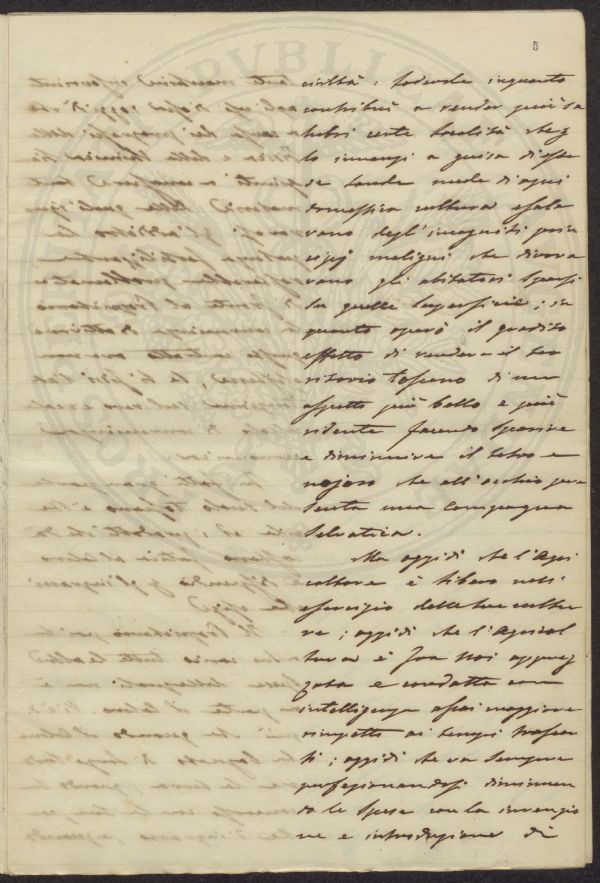 5
civiltà: lodevole inquanto
contribuì a render più sa
lubri certe località che p
lo innanzi a guisa d'este
se lande nude d'ogni
domestica cultura esala
vano degl'incogniti prin
cipj maligni che divora
vano gli abitatori sparsi
su quelle superficie; in
quanto operò il gradito
effetto di rendere il ter
ritorio Toscano di un
aspetto più bello e più
ridente facendo sparire
e diminuire il tetro e
nojoso che all'occhio pre
senta una campagna
selvatica.
Ma oggidì che l'Agri
coltore è libero nell'
esercizio delle sue cultu
re; oggidì che l'Agricol
tura è fra noi apprez
zata e condotta con
intelligenza assai maggiore
rispetto ai tempi trascor
si; oggidì che va sempre
perfezionandosi diminuen
do le spese con la invenzio
ne e introduzione di